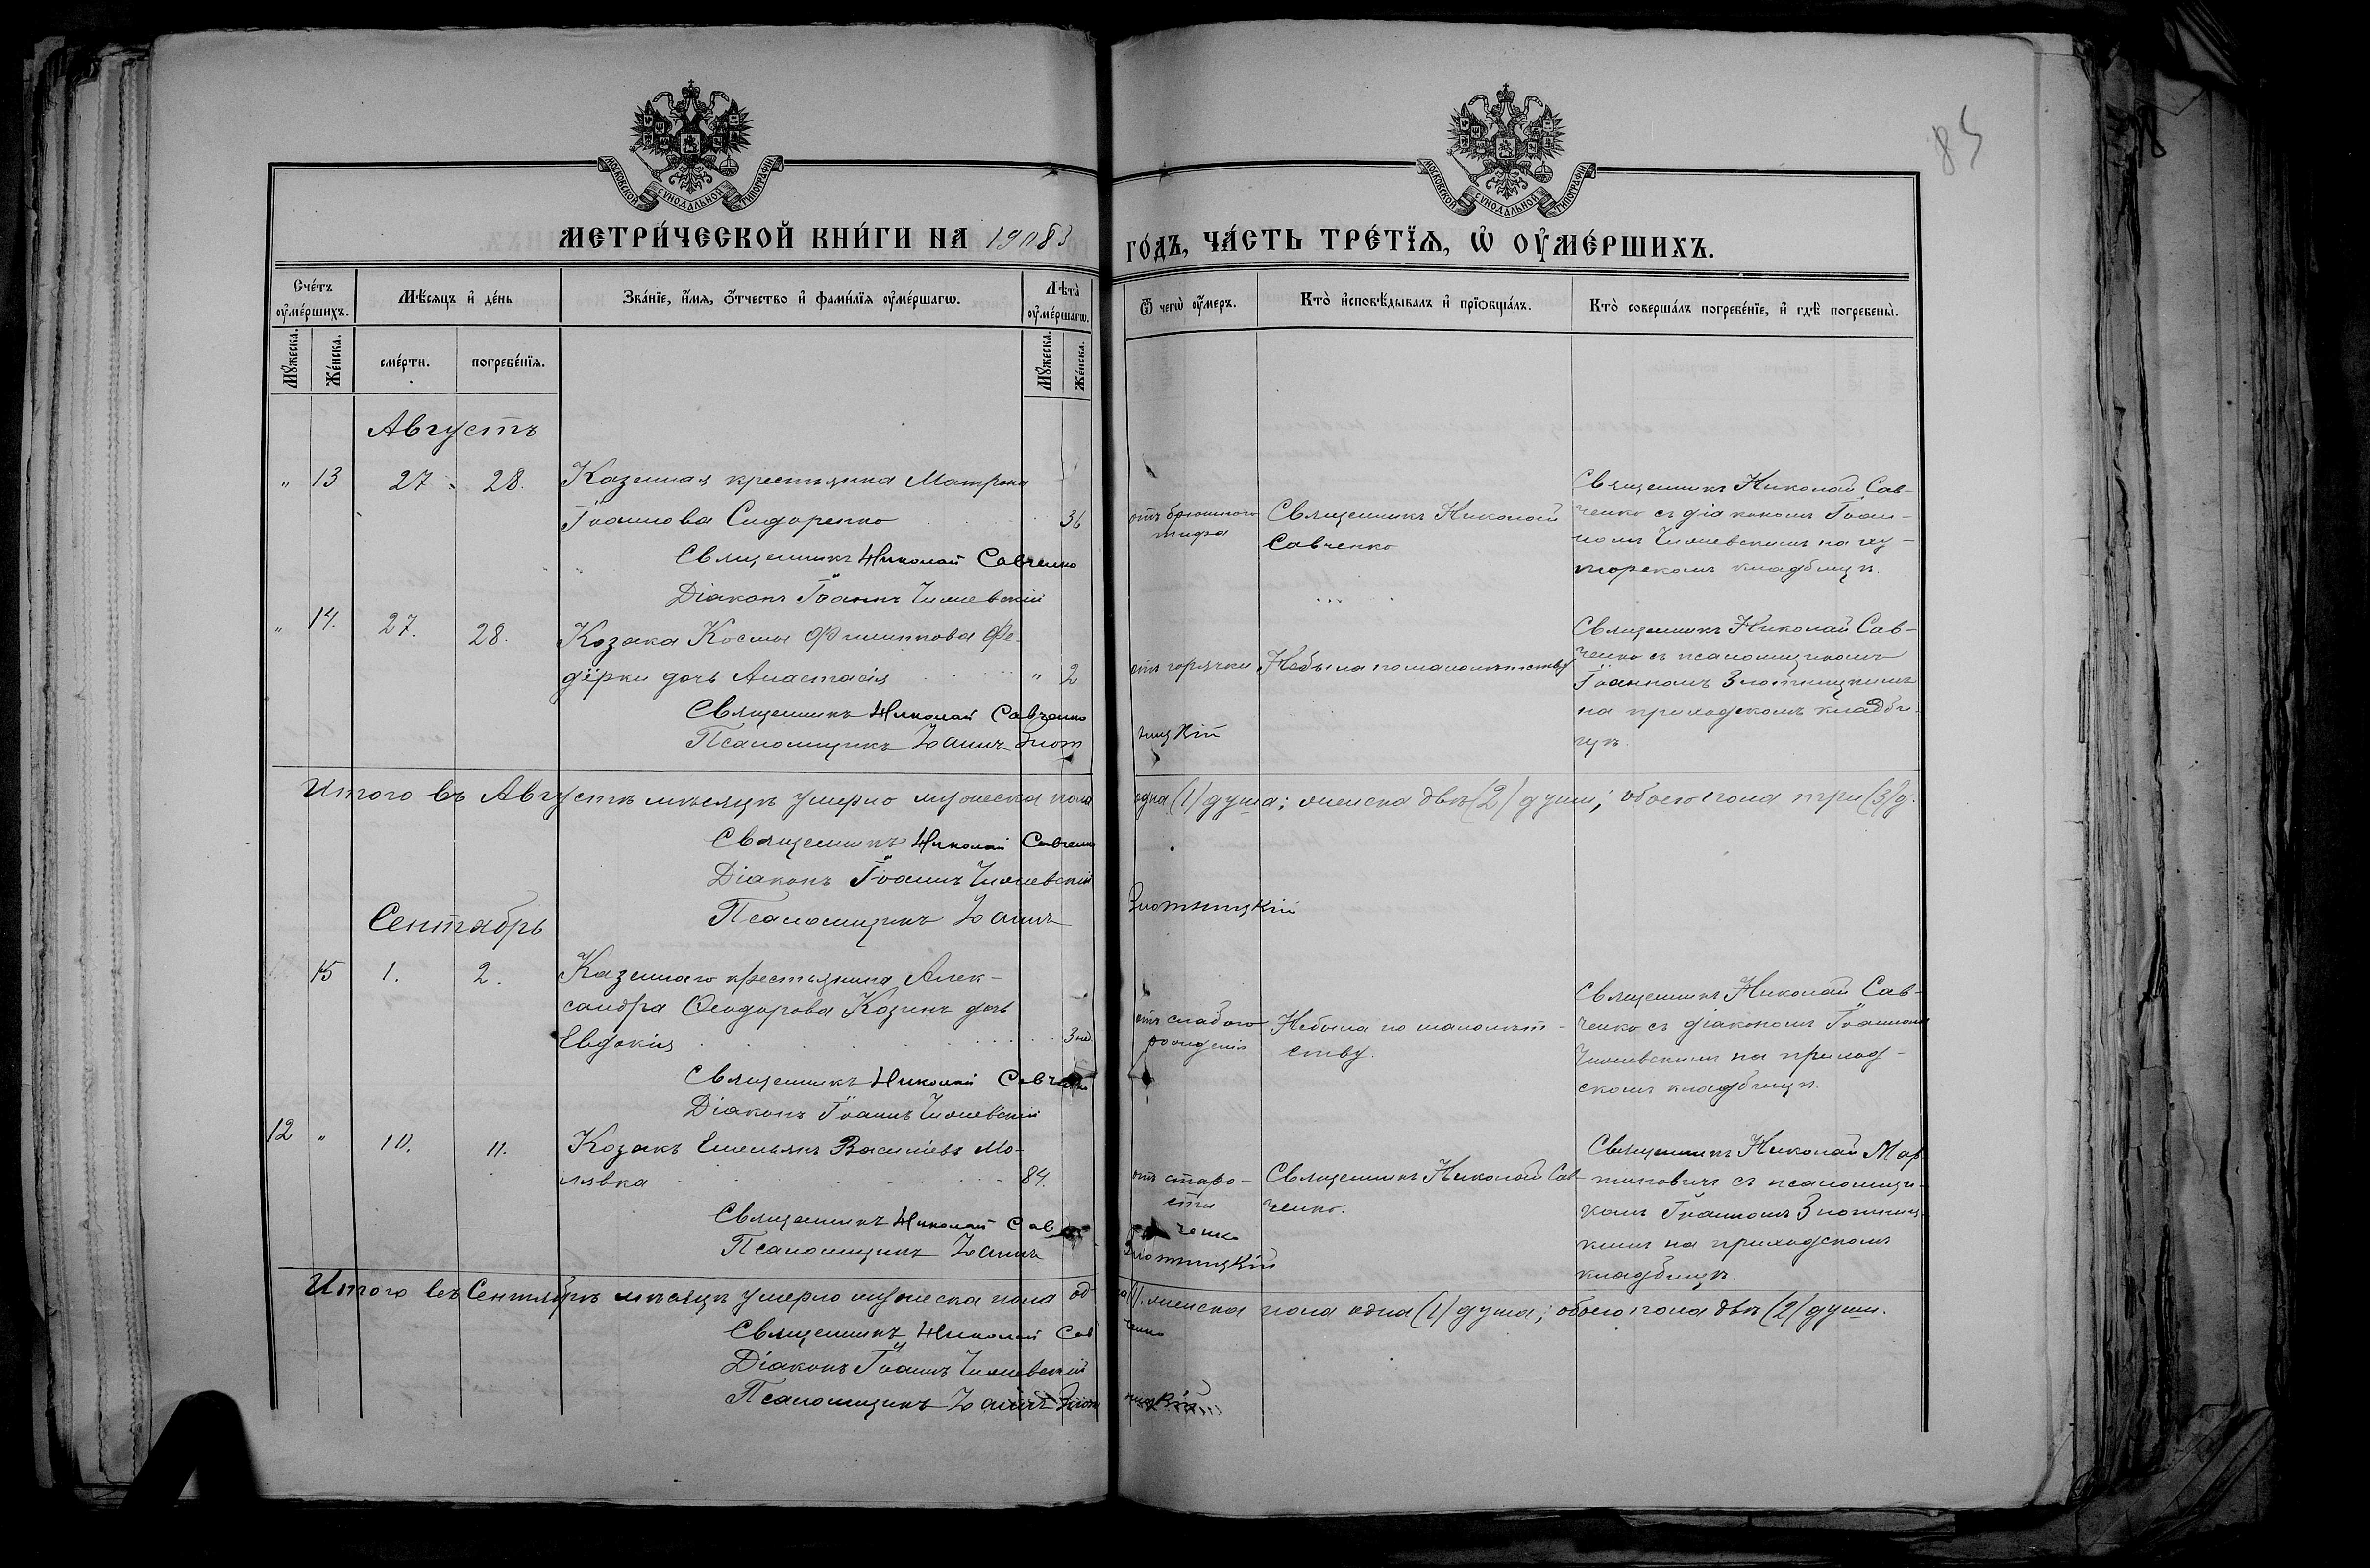 85
МОСКОВСКОЙ СѴНОДАЛЬНОЙ ТИПОГРАФІИ
МОСКОВСКОЙ СѴНОДАЛЬНОЙ ТИПОГРАФІИ
МЕТРИ́ЧЕСКОЙ КНИ́ГИ НА 1908
ГО́ДЪ, ЧА́СТЬ ТРЕ́ТЇѦ, Ѡ҆ ОУ҆МЕ́РШИХЪ.
Сче́тъ оу҆ме́ршихъ.
Мѣ́сяцъ и҆ де́нь
Зва́нїе, и҆́мѧ, ѻ҆́тчество и҆ фами́лїѧ оу҆ме́ршагѡ.
Лѣ́та оу҆ме́ршагѡ.
Ѿ чегѡ̀ оу҆́меръ.
Кто̀ и҆сповѣ́дывалъ и҆ прїѻбща́лъ.
Кто̀ соверша́лъ погребе́нїе, и҆ гдѣ̀ погребены̀.
Мꙋ́жеска.
Же́нска.
сме́рти.
погребе́нїѧ.
Мꙋ́жеска.
Же́нска.
Августъ
" 13 27 28. Казенная крестьянка Матрона
Іоаннова Сидоренко 36
Священникъ Николай Савченко
Діаконъ Іоаннъ
отъ брюшного
тифа
Священникъ Николай
Савченко
Священникъ Николай Сав-
ченко съ діакономъ Іоан-
номъ на ху-
торскомъ кладбищѣ.
" 14. 27. 28. Козака Космы Филиппова Фе-
дірки дочь Анастасія " 2
Священникъ Николай Савченко
Псаломщикъ Іоаннъ Злот
ницкій
отъ горячки
Небыла по малолѣтству
Священникъ Николай Сав-
ченко съ псаломщикомъ
Іоанномъ Злотницкимъ
на приходскомъ кладби-
щѣ.
Итого въ Августѣ мѣсяцѣ умерло мужеска пола одна (1) душа; женска двѣ (2) души; обоего пола три (3) д.
Священникъ Николай Савченко
Діаконъ Іоаннъ
Псаломщикъ Іоаннъ Злотницкій
Сентябрь
15 1. 2. Казеннаго крестьянина Алек-
сандра Ѳеодорова Козинъ дочь
Евдокія 3 нед.
Священникъ Николай Савченко
Діаконъ Іоаннъ
отъ слабого
рожденія
Небыла по малолѣт-
ству.
Священникъ Николай Сав-
ченко съ діакономъ Іоанномъ
на приход-
скомъ кладбищѣ.
12 " 10. 11. Козакъ Емельянъ Василіевъ Мо-
лявка 84.
Священникъ Николай Савченко
Псаломщикъ Іоаннъ Злотницкій
отъ старо-
сти
Священникъ Николай Сав-
ченко.
Священникъ Николай Мар-
тиновичъ съ псаломщи-
комъ Іоанномъ Злотниц-
кимъ на приходскомъ
кладбищѣ.
Итого въ Сентябрѣ мѣсяцѣ умерло мужеска пола одна (1), женска пола одна (1) душа; обоего пола двѣ (2) души.
Священникъ Николай Савченко
Діаконъ Іоаннъ
Псаломщикъ Іоаннъ Злотницкій